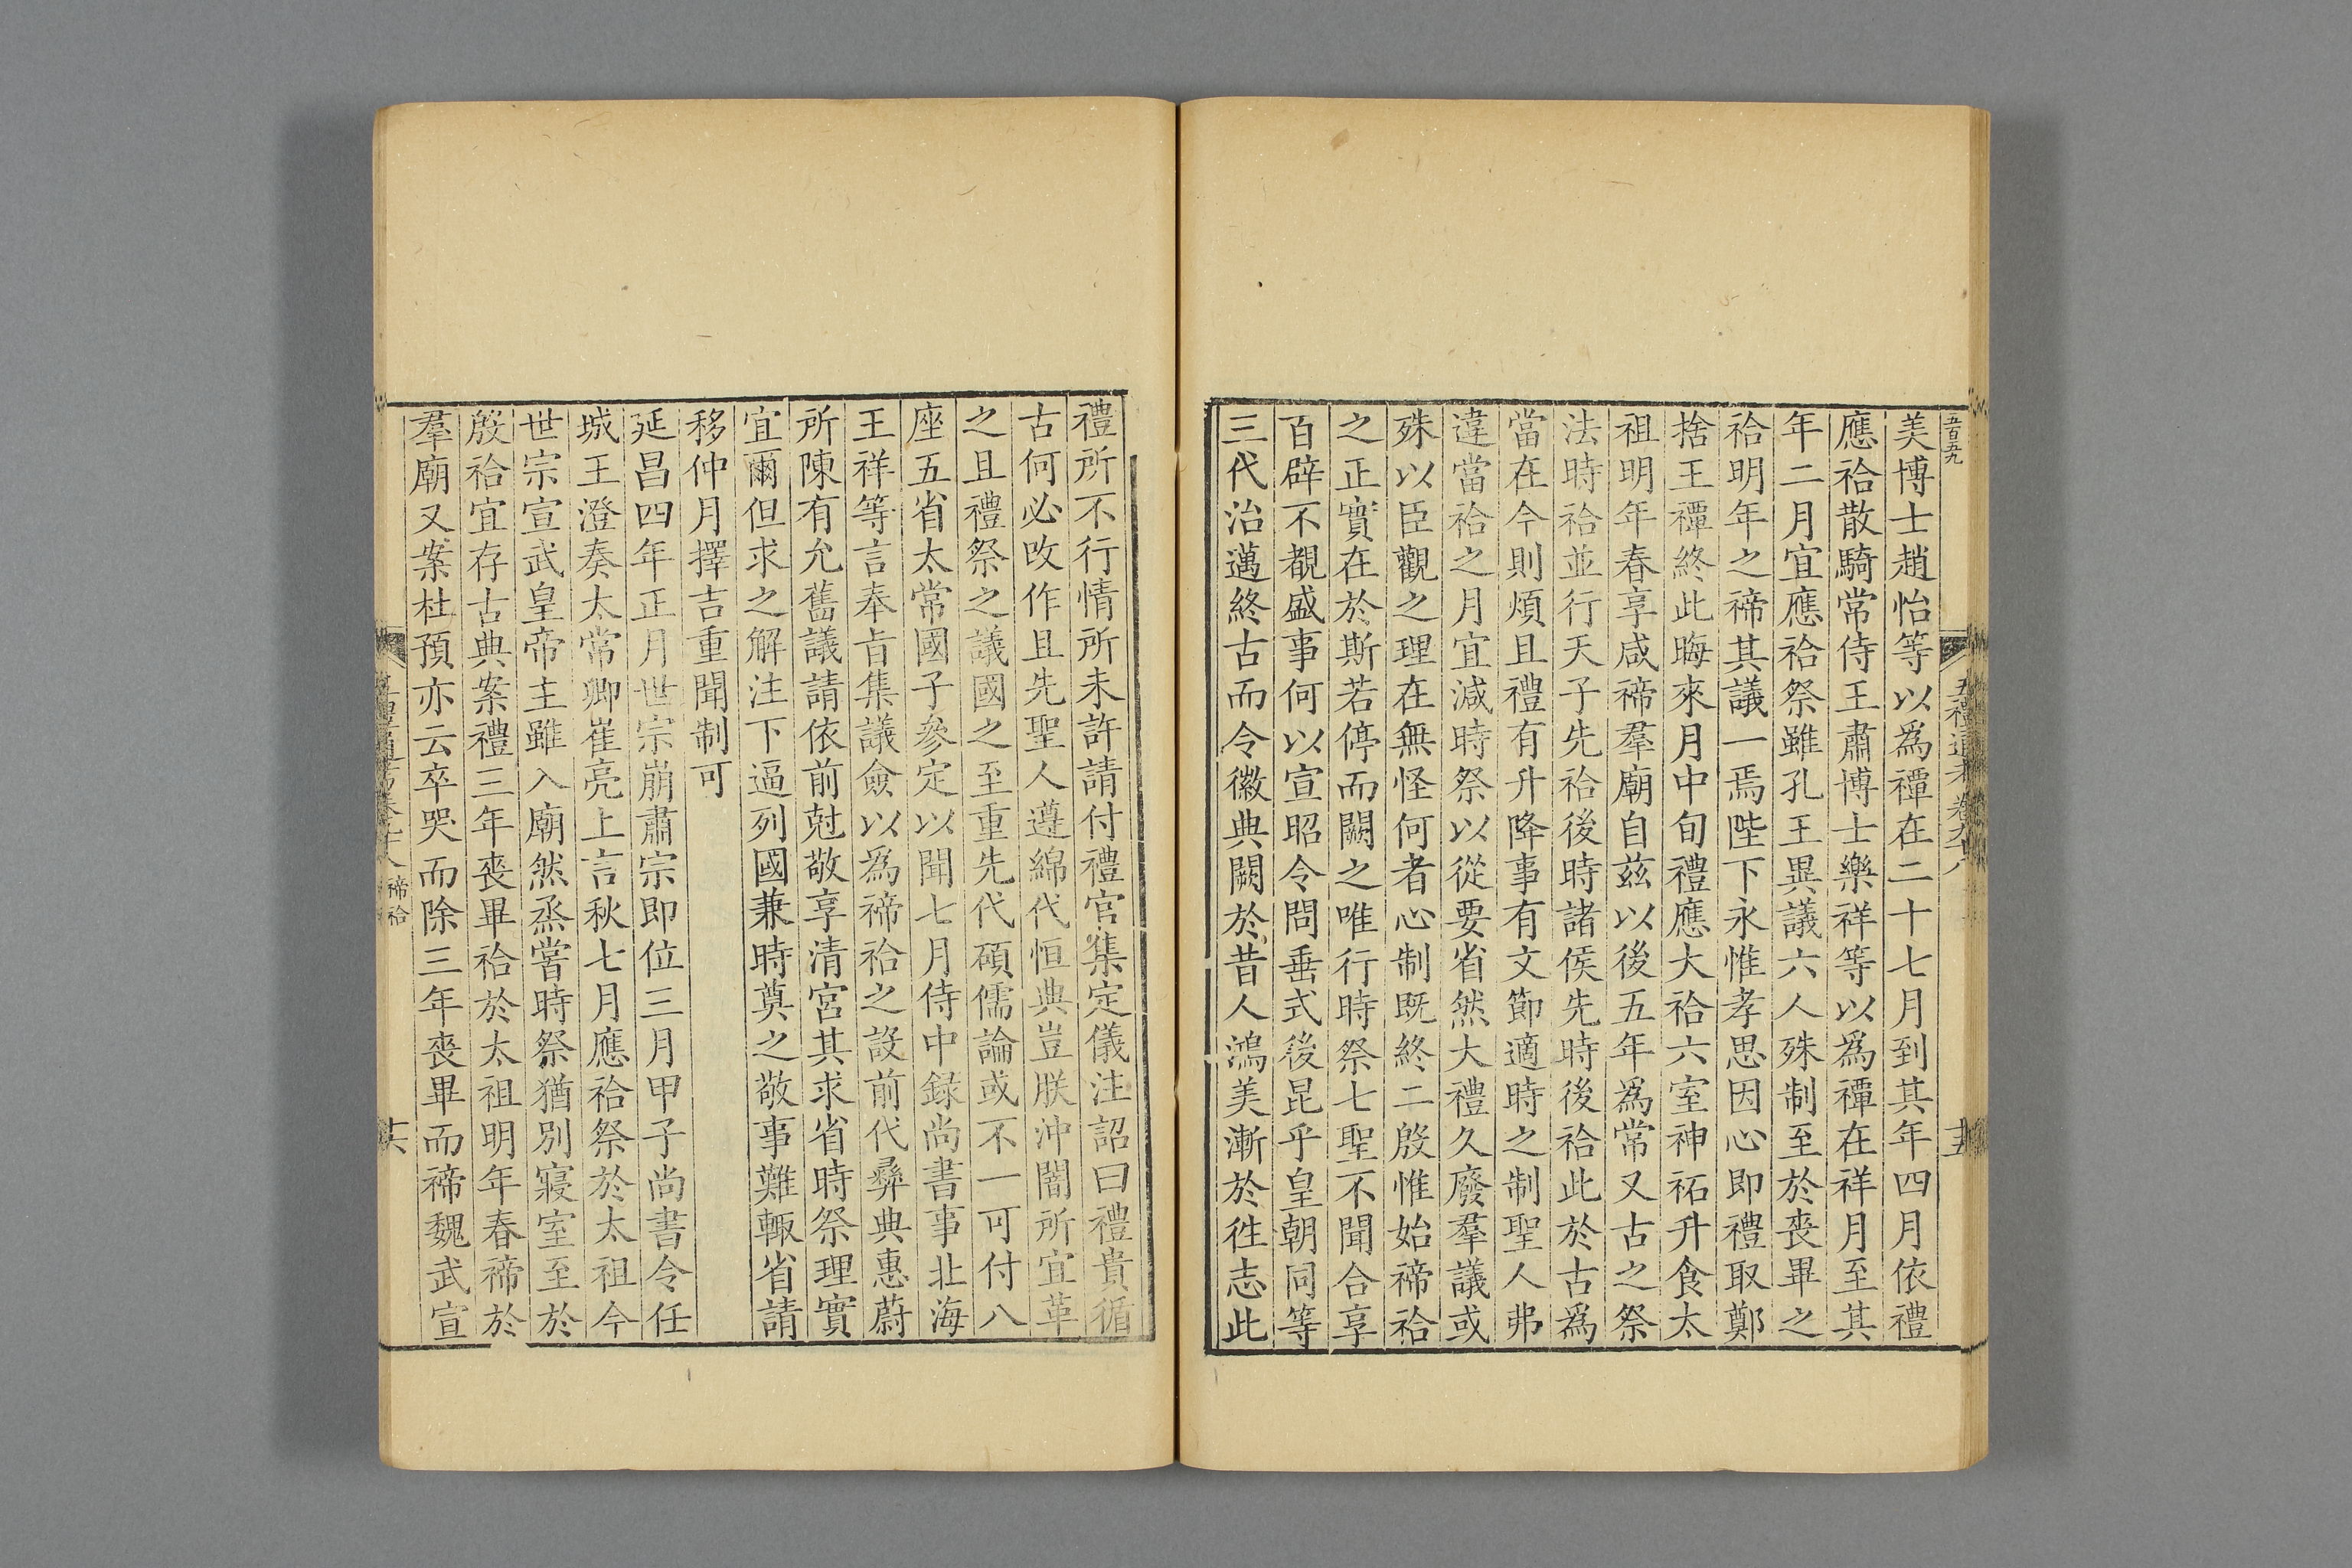 五百五九
五禮通考卷九十八
十五
美博士趙怡等以爲禫在二十七月到其年四月依禮
應祫散騎常侍王肅博士樂祥等以爲禫在祥月至其
年二月宜應祫祭雖孔王異議六人殊制至於喪畢之
祫明年之禘其議一焉陛下永惟孝思因心即禮取鄭
捨王禫終此晦來月中旬禮應大祫六室神祏升食太
祖明年春享咸禘羣廟自茲以後五年爲常又古之祭
法時祫並行天子先祫後時諸侯先時後祫此於古爲
當在今則煩且禮有升降事有文節適時之制聖人弗
違當祫之月宜減時祭以從要省然大禮久廢羣議或
殊以臣觀之理在無怪何者心制既終二殷惟始禘祫
之正實在於斯若停而闕之唯行時祭七聖不聞合享
百辟不覩盛事何以宣昭令問垂式後昆乎皇朝同等
三代治邁終古而令徽典闕於昔人鴻美漸於徃志此
禮所不行情所未許請付禮官集定儀注詔曰禮貴循
古何必攺作且先聖人遵綿代恒典豈朕沖闇所宜革
之且禮祭之議國之至重先代碩儒論或不一可付八
座五省太常國子參定以聞七月侍中録尚書事北海
王祥等言奉㫖集議僉以爲禘祫之設前代彝典惠蔚
所陳有允舊議請依前尅敬享清宮其求省時祭理實
宜爾但求之解注下逼列國兼時奠之敬事難輙省請
移仲月擇吉重聞制可
延昌四年正月世宗崩肅宗即位三月甲子尚書令任
城王澄奏太常卿崔亮上言秋七月應祫祭於太祖今
世宗宣武皇帝主雖入廟然烝嘗時祭猶別寢室至於
殷祫宜存古典案禮三年喪畢祫於太祖明年春禘於
羣廟又案杜預亦云卒哭而除三年喪畢而禘魏武宣
五禮通考卷九十八 禘祫
十六